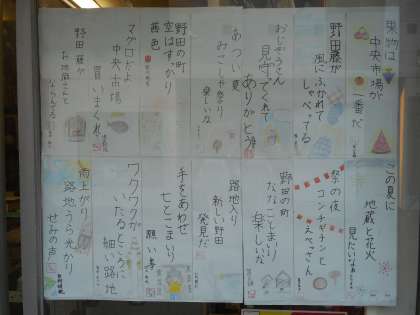 果物は
中央市場が
一番だ
野田藤が
風にふかれて
しゃべってる
おじぞうさん
見守ってくれて
ありがとう
あつい夏
みこしや祭り
楽しいな
野田の町
空はすっかり
茜色
マグロだよ
中央市場
買いまくれ
野田藤が
お地蔵さんと
ならんでる
この夏に
地蔵と花火
見たいなぁ
祭の夜
コンチキチンと
えべっさん
野田の町
ななことまいり
楽しいな
路地入り
新しい野田
発見だ
手をあわせ
七とこまいり
願い事
ワクワクが
いたるところに
細い路地
雨上がり
路地うら光かり
せみの声